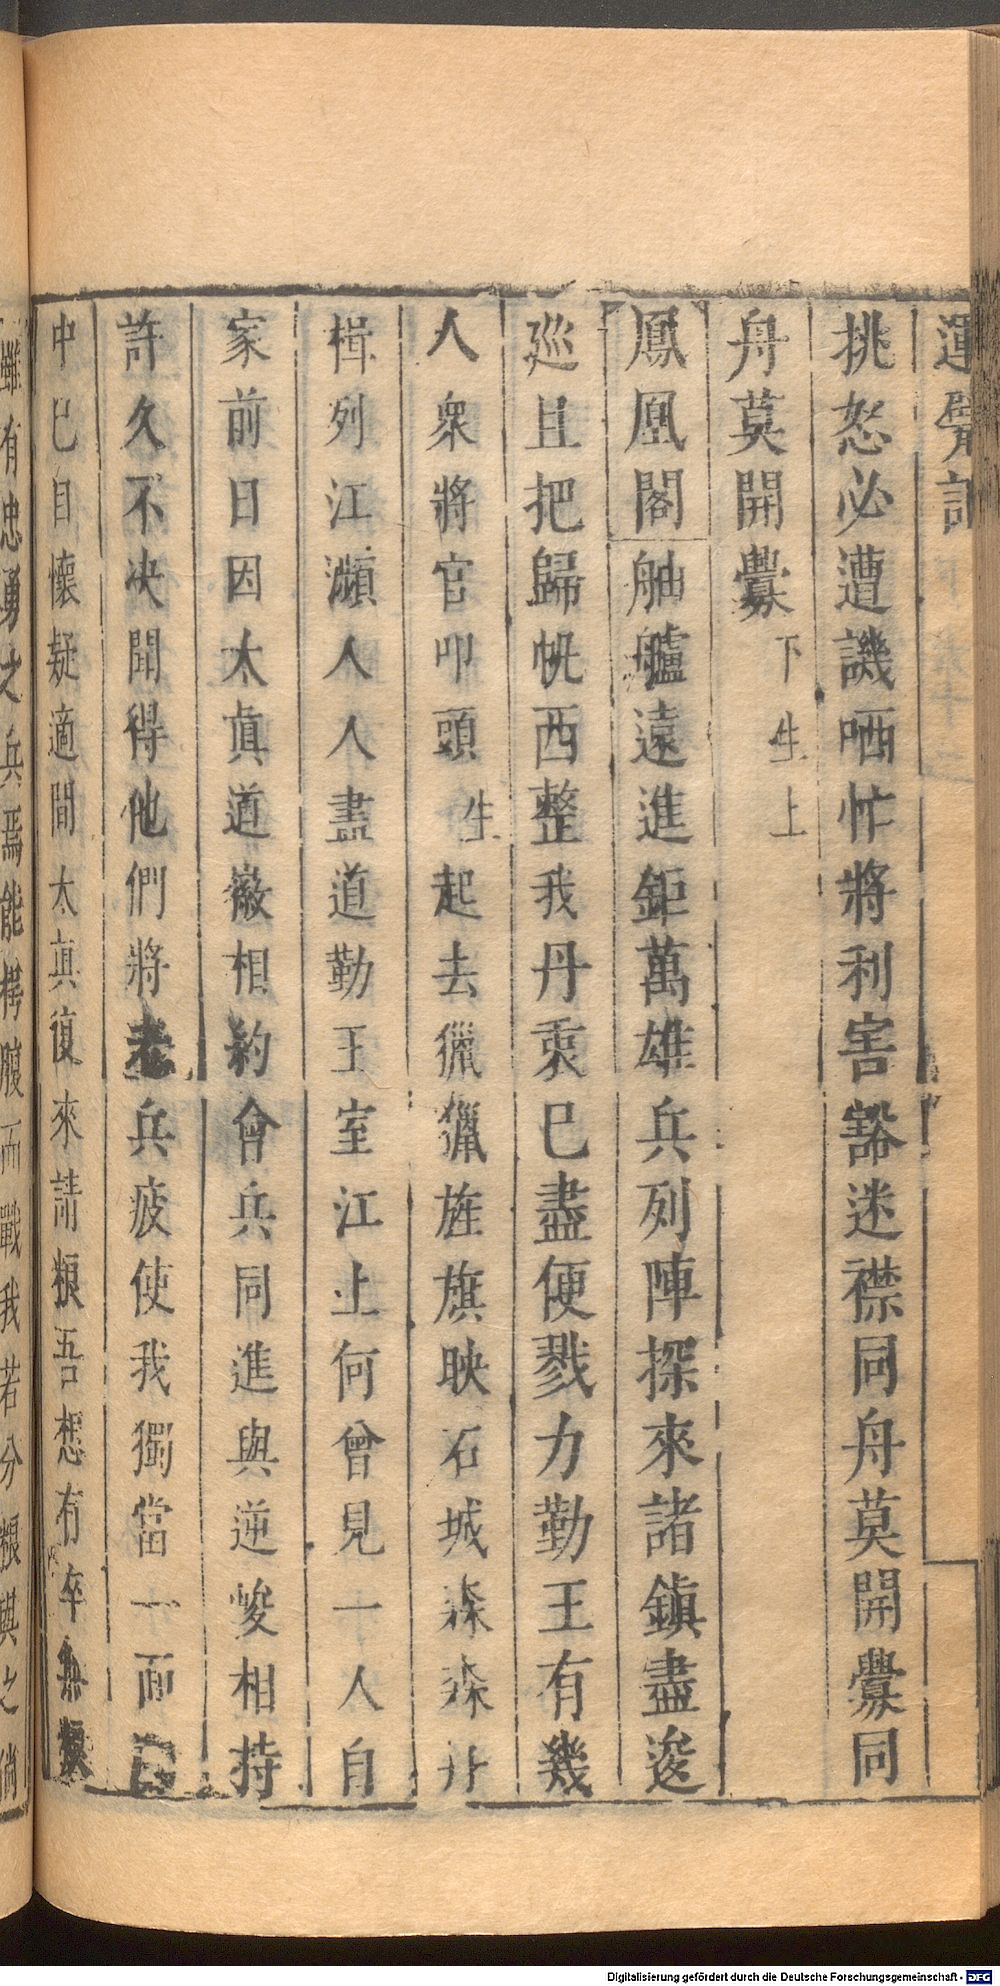 運甓記
挑怒必遭譏哂忙將利害豁迷襟同舟莫開釁同
舟莫開釁下生上
鳳凰閣舳艫遠進鉅萬雄兵列陣探來諸鎮盡逡
巡且把歸帆西整我丹衷巳盡便戮力勤王有幾
人衆將官叩頭生起去獵獵旌旗映石城森森舟
楫列江濵人人盡道勤王室江上何曾見一人自
家前日因太眞道徽相約會兵同進與逆峻相持
許久不决聞得他們將老兵疲使我獨當一面
中巳自懷疑適間太眞復來請粮吾想有卒無粮
雖有忠勇之兵焉能枵腹而戰我若分粮與之倘
Digitalisierung gefördert durch die Deutsche Forschungsgemeinschaft - DFG